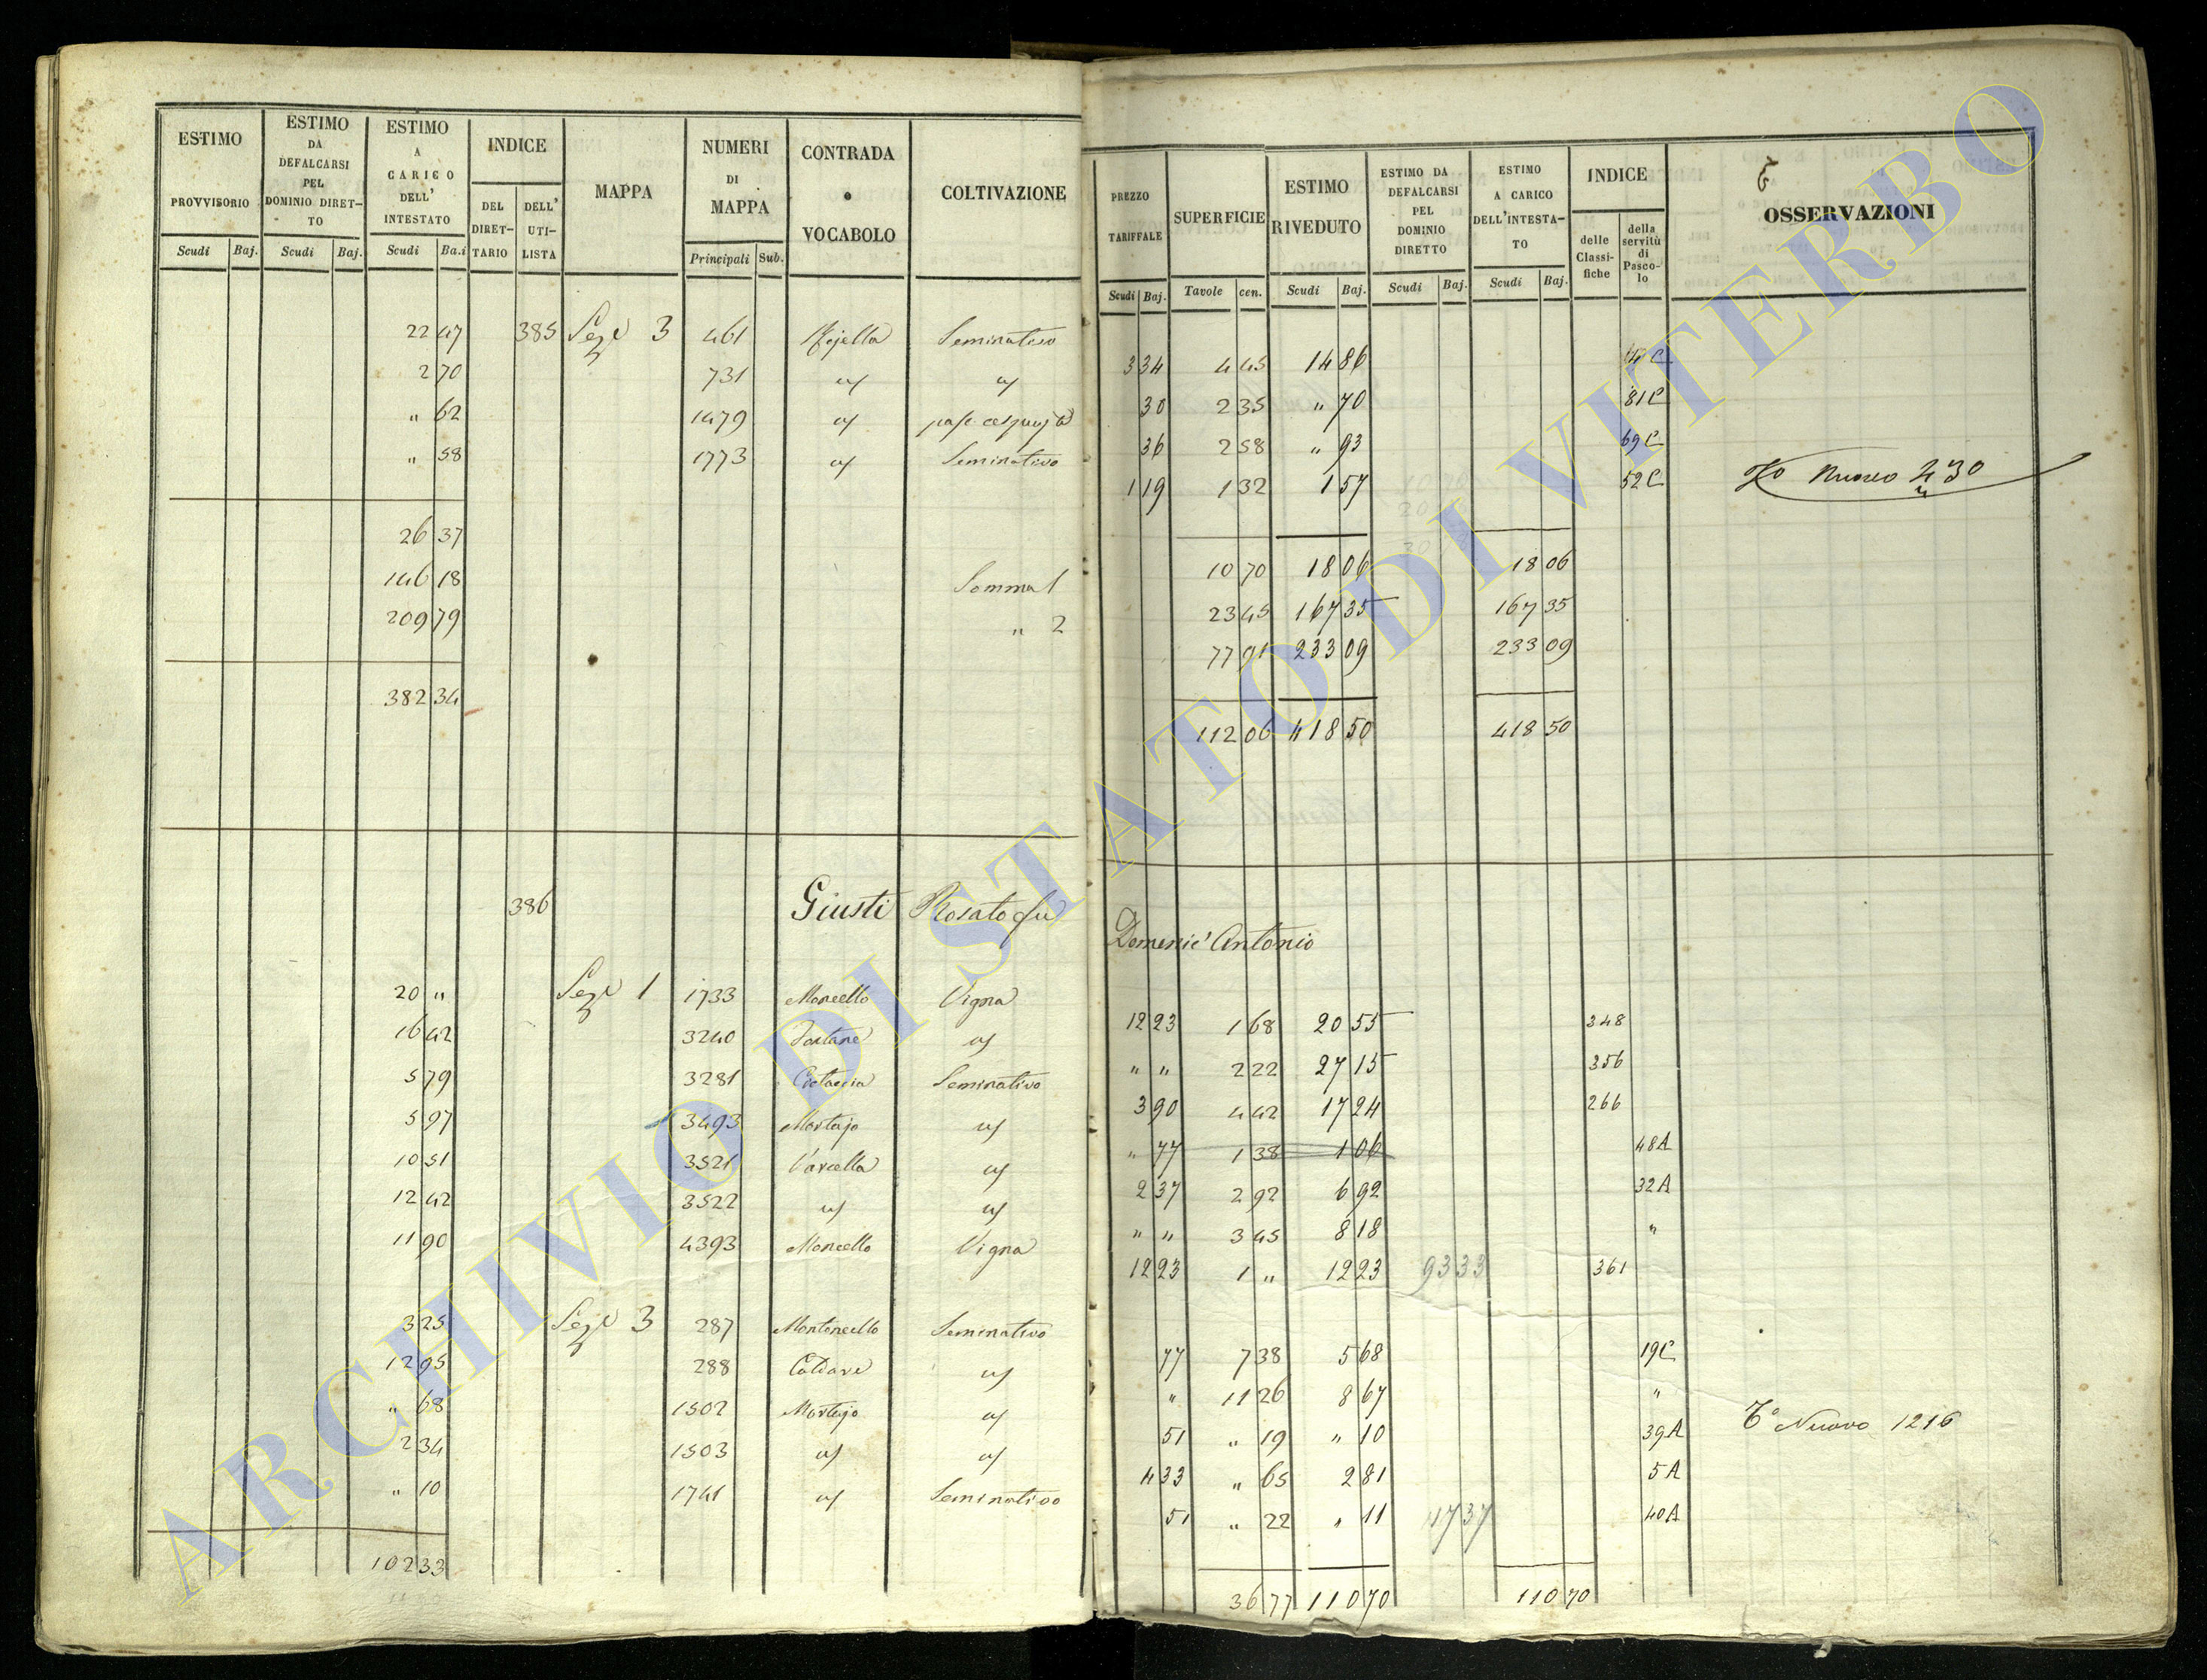 ESTIMO PROVVISORIO Scudi Baj. ESTIMO DA DEFALCARSI PEL DOMINIO DIRETTO Scudi Baj. ESTIMO A CARICO DELL' INTESTATO Scudi Ba.i INDICE DEL DIRETTARIO DELL' UTILISTA MAPPA NUMERI DI MAPPA Principali Sub. CONTRADA o VOCABOLO COLTIVAZIONE
PREZZO TARIFFALE Scudi Baj. SUPERFICIE Tavole cen. ESTIMO RIVEDUTO Scudi Baj. ESTIMO DA DEFALCARSI PEL DOMINIO DIRETTO Scudi Baj. ESTIMO A CARICO DELL'INTESTATO Scudi Baj. INDICE delle Classifiche della servitù di Pascolo OSSERVAZIONI
22 47 385 Sez.e 3 461 Seminativo 3 34 4 45 14 86
2 70 731 " " 30 2 35 " 70 81 C
" 62 1479 " 36 2 58 " 93 69 C
" 58 1773 " Seminativo 1 19 1 32 1 57 52 C Nuovo 430
26 37 10 70 18 06 18 06
146 18 Somma 1 23 45 167 35 167 35
209 79 " 2 77 91 233 09 233 09
382 34 112 06 418 50 418 50
386 Giusti Rosato fu Domenic' Antonio
20 " Sez.e 1 1733 Moncello Vigna 12 23 1 68 20 55 348
16 42 3240 " " " 2 22 27 15 356
5 79 3281 Seminativo 3 90 4 42 17 24 266
5 97 3493 Mortajo " " 77 1 38 1 06 48 A
10 51 3521 Varcella " 2 37 2 92 6 92 32 A
12 42 3522 " " " " 3 45 8 18 "
11 90 4393 Moncello Vigna 12 23 1 " 12 23 93 33 361
3 25 Sez.e 3 287 Montoncello Seminativo 77 7 38 5 68 19 C
12 95 288 Caldare " " 11 26 8 67 "
" 68 1502 Mortajo " 51 " 19 " 10 39 A T° Nuovo 1216
2 34 1503 " " 4 33 " 65 2 81 5 A
" 10 1741 " Seminativo 51 " 22 " 11 17 37 40 A
102 33 36 77 110 70 110 70
ARCHIVIO DI STATO DI VITERBO